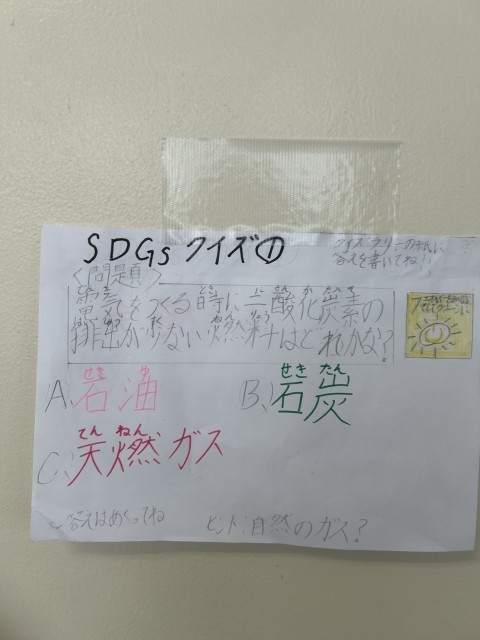 SDGsクイズ①
クイズラリーの紙に
答えを書いてね!!
<問題>
電気をつくる時に二酸化炭素の
排出が少ない燃料はどれかな?
A.石油
B.石炭
C.天燃ガス
答えはめくってね
ヒント:自然のガス?